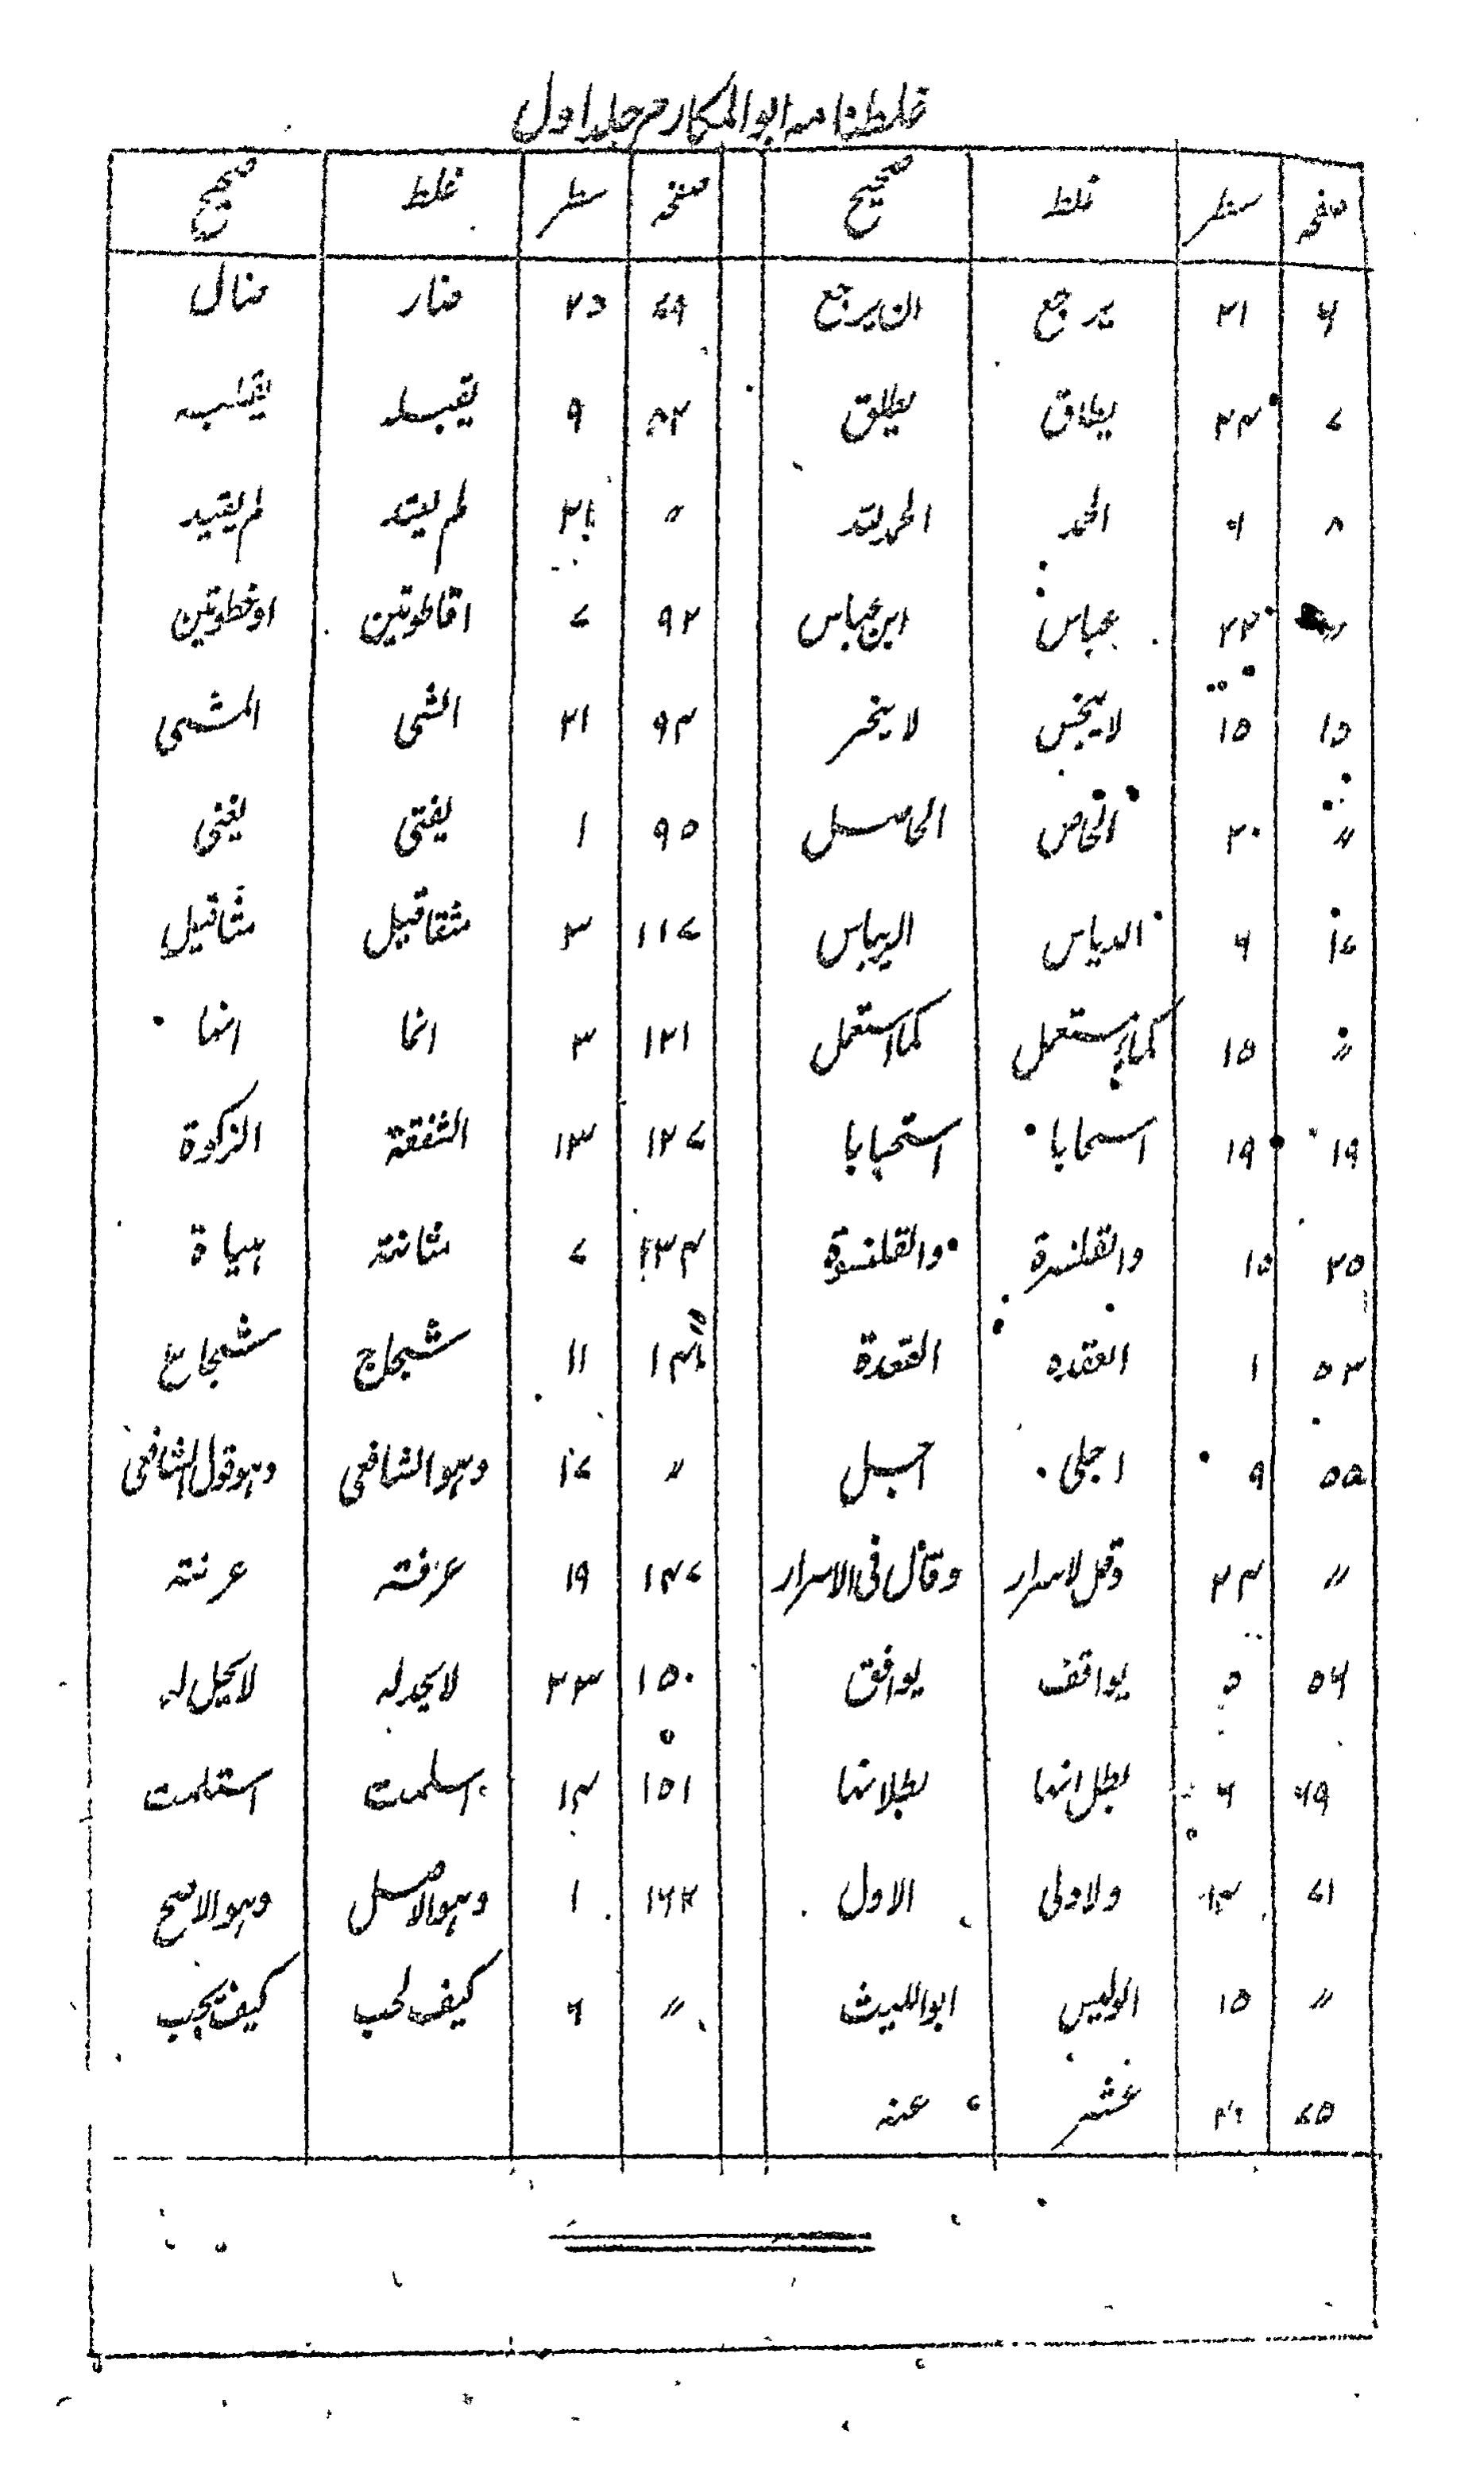 غلطنامه ابوالمکارم جلد اول
صفحہ سطر غلط صحیح صفحہ سطر غلط صحیح
۶ ۲۱ یرجع ان یرجع ۷۹ ۲۵ منار منال
۷ ۲۴ یطاق یطلق ۸۲ ۹ یقبله یقلبه
۸ ۶ الحمد الحمد لله 〃 ۲۱ لم یعتد لم یقید
〃 ۲۲ عباس ابن عباس ۹۲ ۷ اقاطوتین او خطوتین
۱۵ ۱۵ لا ینجس لا ینجر ۹۴ ۲۱ الشی المشمی
〃 ۲۰ الخاص الحاصل ۹۵ ۱ یفتی یغنی
۱۷ ۶ الدیاس الریباس ۱۱۷ ۳ مثقاقیل مثاقیل
〃 ۱۵ کما یستعمل کما استعمل ۱۲۱ ۳ انما انها
۱۹ ۱۹ اسحابا استحبابا ۱۲۷ ۱۳ النفقة الزکوة
۲۵ ۱۵ والقلنسرة والقلنسوة ۱۳۴ ۷ شائته هیاة
۵۳ ۱ العقده القعدة ۱۴۵ ۱۱ شجاج شجاع
۵۵ ۹ اجلی اجل 〃 ۱۷ وهو الشافعی وهو قول الشافعی
〃 ۲۴ وقل لاسرار وقال فی الاسرار ۱۴۷ ۱۹ عرفته عرنته
۵۶ ۵ یواقف یوافق ۱۵۰ ۲۳ لا یحد له لا یحیل له
۶۹ ۶ بطل انها بطلانها ۱۵۱ ۱۴ اسلمت استلمت
۷۱ ۱۴ ولاولی الاول ۱۶۲ ۱ وهو الاصل وهو الاصح
〃 ۱۵ الولیس ابو اللیث 〃 ۶ کیف لحب کیف یجب
۷۵ عشر عنه